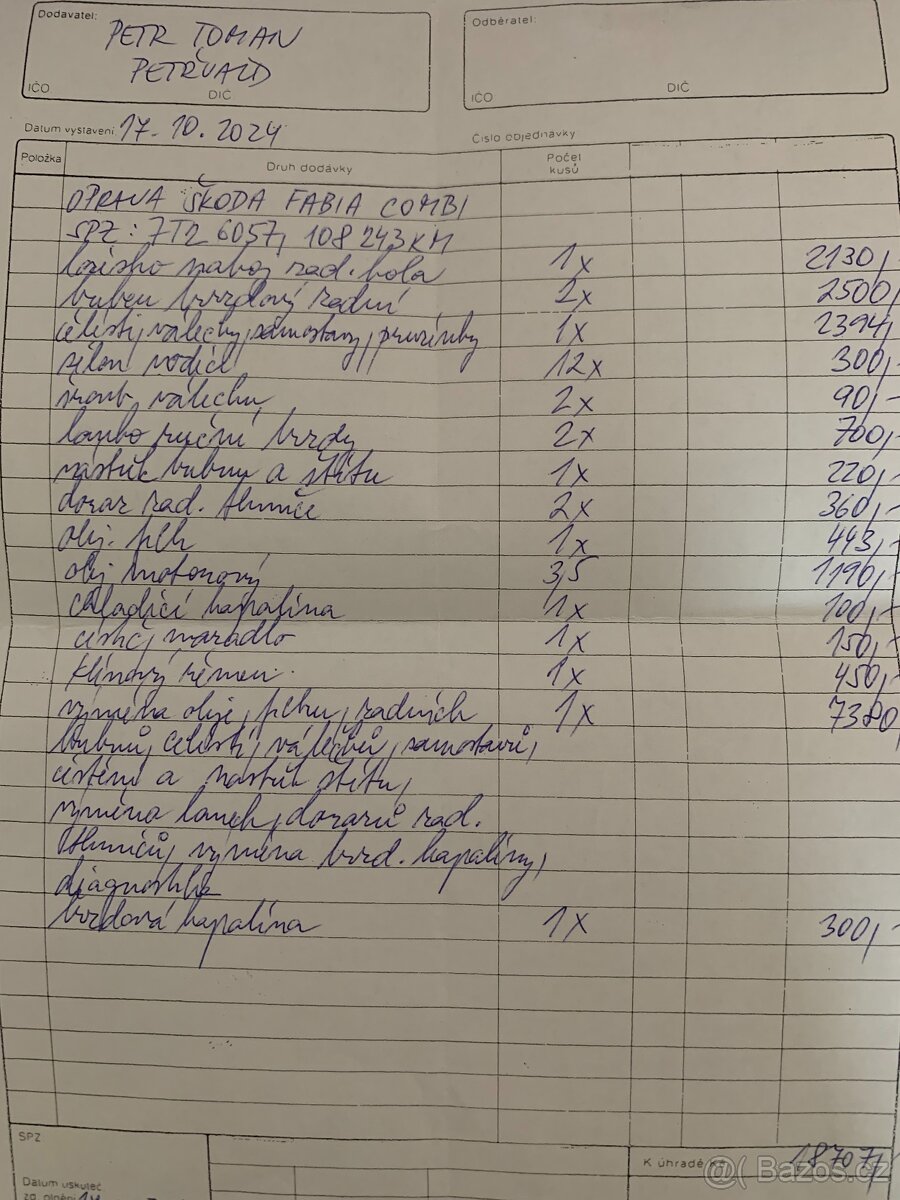 Dodavatel:
PETR TOMAN
PETŘVALD
IČO DIČ
Odběratel:
IČO DIČ
Datum vystavení 17.10.2024
Číslo objednávky
Položka Druh dodávky Počet kusů
OPRAVA ŠKODA FABIA COMBI
SPZ: 7T2 6057, 108 243 KM
ložisko náboj zad. kola 1x 2130,-
buben brzdový zadní 2x 2500,-
čelisti, válečky, samostavy, pružinky 1x 2394,-
silon vodící 12x 300,-
šroub válečku 2x 90,-
lanko ruční brzdy 2x 700,-
nástřik bubnu a štítu 1x 220,-
doraz zad. tlumiče 2x 360,-
olej. filtr 1x 443,-
olej motorový 3,5 1190,-
chladící kapalina 1x 100,-
čistič, mazadlo 1x 150,-
klínový řemen 1x 450,-
výměna oleje, filtru, zadních 1x 7380,
bubnů, čelistí, válečků, samostavů,
čistění a nástřik štítu,
výměna lanek, dorazů zad.
tlumičů, výměna brzd. kapaliny,
diagnostika
brzdová kapalina 1x 300,-
SPZ
K úhradě Kč 18707,
Datum uskuteč.
zd. plnění
@( Bazos.cz